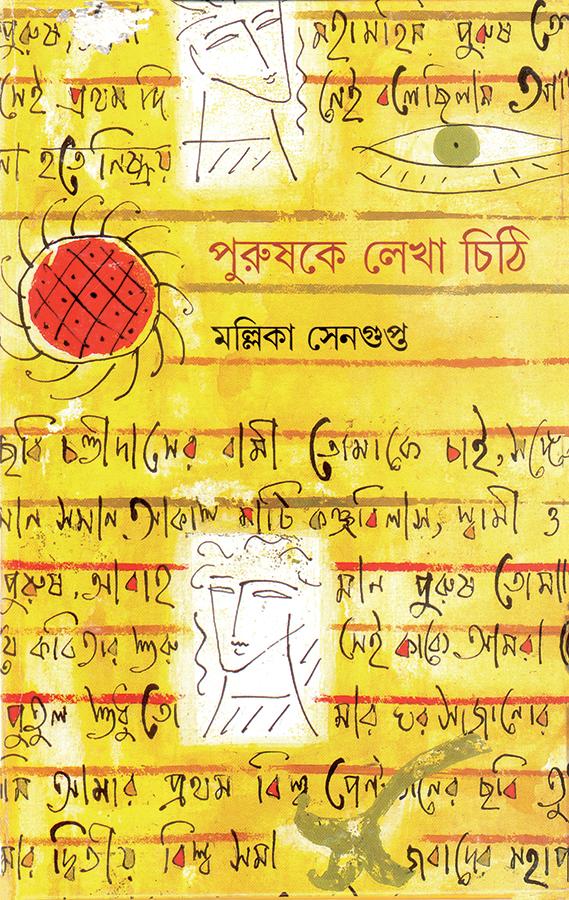 পুরুষ,
মহামহিম পুরুষ তো
সেই প্রথম দি
নেই বলেছিলাম আ
না হতে নিষ্ক্রয়
পুরুষকে লেখা চিঠি
মল্লিকা সেনগুপ্ত
ছবি চণ্ডীদাসের রামী তোমাকে চাই, সঙ্গে
মান সমান আকাশ মাটি কঞ্জুবিলাস, স্বামী ও
পুরুষ, আবাহ
মান পুরুষ তোমা
কবিতার শুরু
সেই কাব্যে আমরা
পুতুল শুধু তো
মার ঘর সাজানোর
আমার প্রথম বিশ্ব পেন্টাগনের ছবি তু
মার দ্বিতীয় বিশ্ব সমা
জবাদের মহাপ